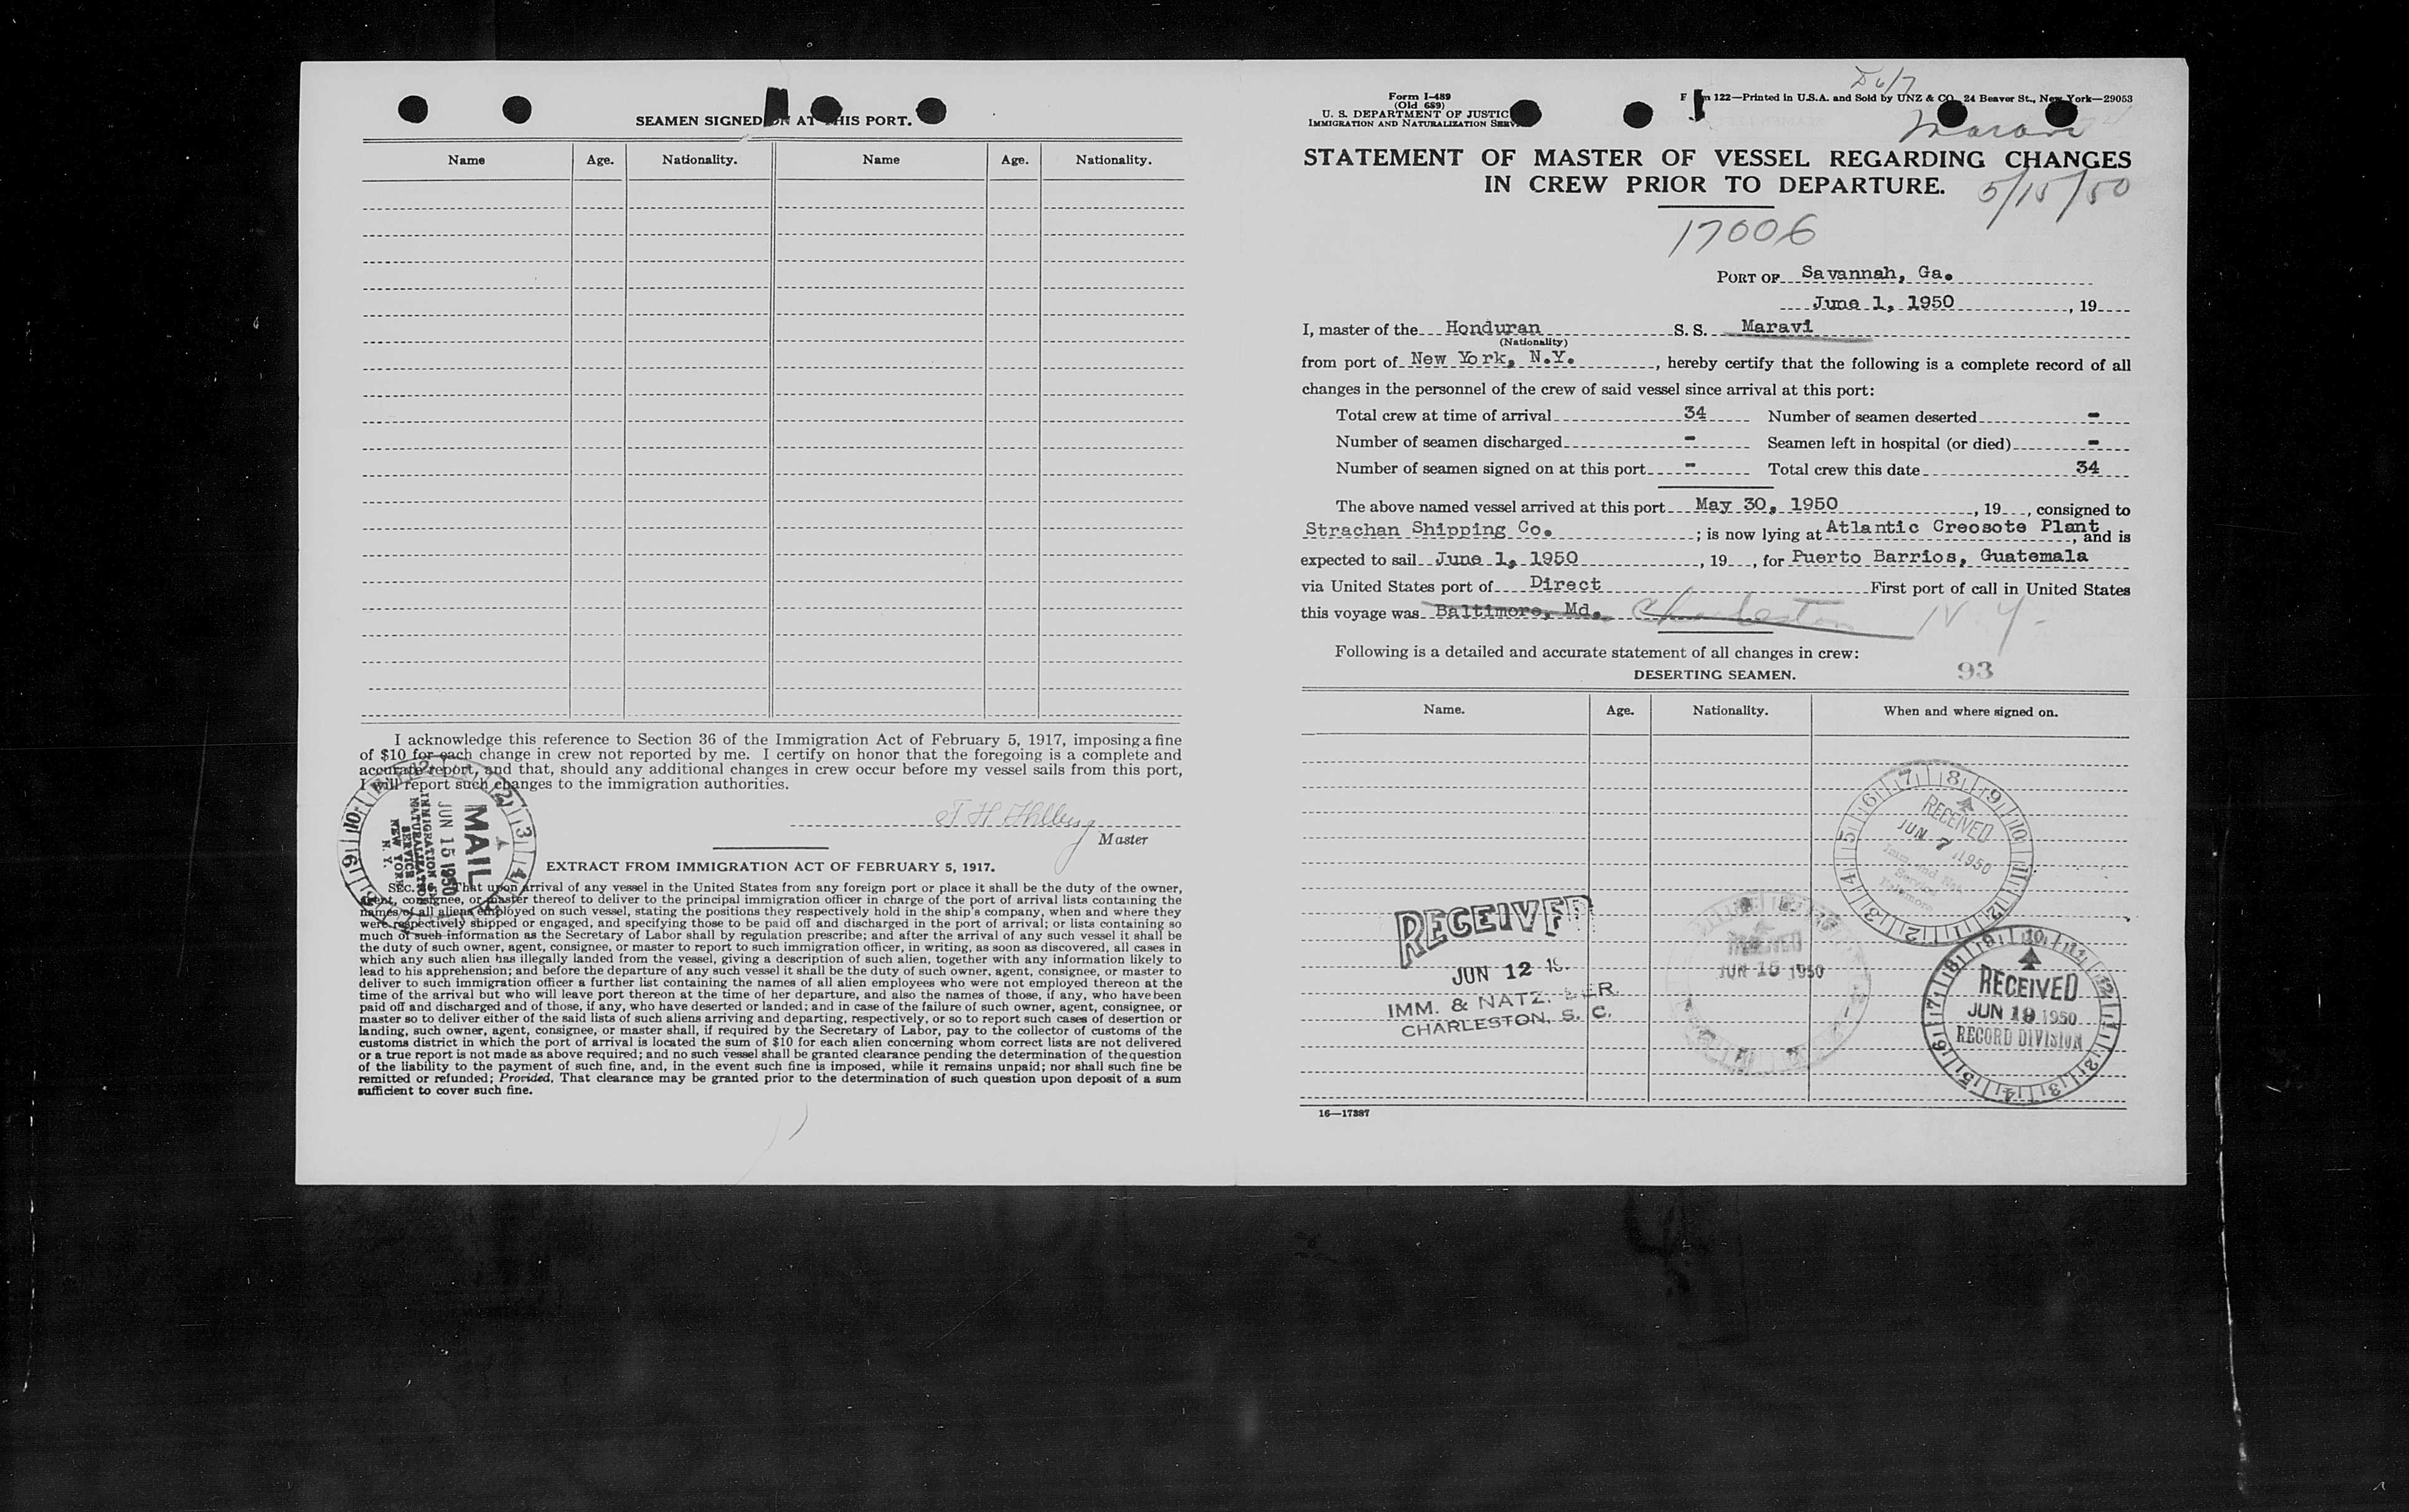 SEAMEN SIGNED ON AT THIS PORT.
Name Age. Nationality. Name Age. Nationality.
I acknowledge this reference to Section 36 of the Immigration Act of February 5, 1917, imposing a fine
of $10 for each change in crew not reported by me. I certify on honor that the foregoing is a complete and
accurate report, and that, should any additional changes in crew occur before my vessel sails from this port,
I will report such changes to the immigration authorities.
Master
MAIL
JUN 15 1950
IMMIGRATION &
NATURALIZATION
SERVICE
NEW YORK
N. Y.
EXTRACT FROM IMMIGRATION ACT OF FEBRUARY 5, 1917.
SEC. That upon arrival of any vessel in the United States from any foreign port or place it shall be the duty of the owner,
agent, consignee, or master thereof to deliver to the principal immigration officer in charge of the port of arrival lists containing the
names of all aliens employed on such vessel, stating the positions they respectively hold in the ship's company, when and where they
were respectively shipped or engaged, and specifying those to be paid off and discharged in the port of arrival; or lists containing so
much of such information as the Secretary of Labor shall by regulation prescribe; and after the arrival of any such vessel it shall be
the duty of such owner, agent, consignee, or master to report to such immigration officer, in writing, as soon as discovered, all cases in
which any such alien has illegally landed from the vessel, giving a description of such alien, together with any information likely to
lead to his apprehension; and before the departure of any such vessel it shall be the duty of such owner, agent, consignee, or master to
deliver to such immigration officer a further list containing the names of all alien employees who were not employed thereon at the
time of the arrival but who will leave port thereon at the time of her departure, and also the names of those, if any, who have been
paid off and discharged and of those, if any, who have deserted or landed; and in case of the failure of such owner, agent, consignee, or
master so to deliver either of the said lists of such aliens arriving and departing, respectively, or so to report such cases of desertion or
landing, such owner, agent, consignee, or master shall, if required by the Secretary of Labor, pay to the collector of customs of the
customs district in which the port of arrival is located the sum of $10 for each alien concerning whom correct lists are not delivered
or a true report is not made as above required; and no such vessel shall be granted clearance pending the determination of the question
of the liability to the payment of such fine, and, in the event such fine is imposed, while it remains unpaid; nor shall such fine be
remitted or refunded; Provided, That clearance may be granted prior to the determination of such question upon deposit of a sum
sufficient to cover such fine.
D 6/7
Form I-489
(Old 689)
U. S. DEPARTMENT OF JUSTICE
IMMIGRATION AND NATURALIZATION SERVICE
Form 122—Printed in U.S.A. and Sold by UNZ & CO., 24 Beaver St., New York—29053
Maravi
STATEMENT OF MASTER OF VESSEL REGARDING CHANGES
IN CREW PRIOR TO DEPARTURE.
5/15/50
17006
PORT OF Savannah, Ga.
June 1, 1950, 19
I, master of the Honduran S. S. Maravi
(Nationality)
from port of New York, N.Y., hereby certify that the following is a complete record of all
changes in the personnel of the crew of said vessel since arrival at this port:
Total crew at time of arrival 34 Number of seamen deserted -
Number of seamen discharged - Seamen left in hospital (or died) -
Number of seamen signed on at this port - Total crew this date 34
The above named vessel arrived at this port May 30, 1950, 19, consigned to
Strachan Shipping Co.; is now lying at Atlantic Creosote Plant, and is
expected to sail June 1, 1950, 19, for Puerto Barrios, Guatemala
via United States port of Direct First port of call in United States
this voyage was Baltimore, Md. Charleston N.Y.
Following is a detailed and accurate statement of all changes in crew:
DESERTING SEAMEN.
93
Name. Age. Nationality. When and where signed on.
RECEIVED
JUN 7 1950
RECEIVED
JUN 12 19
IMM. & NATZ. SER.
CHARLESTON, S. C.
JUN 15 1950
RECEIVED
JUN 19 1950
RECORD DIVISION
16—17387